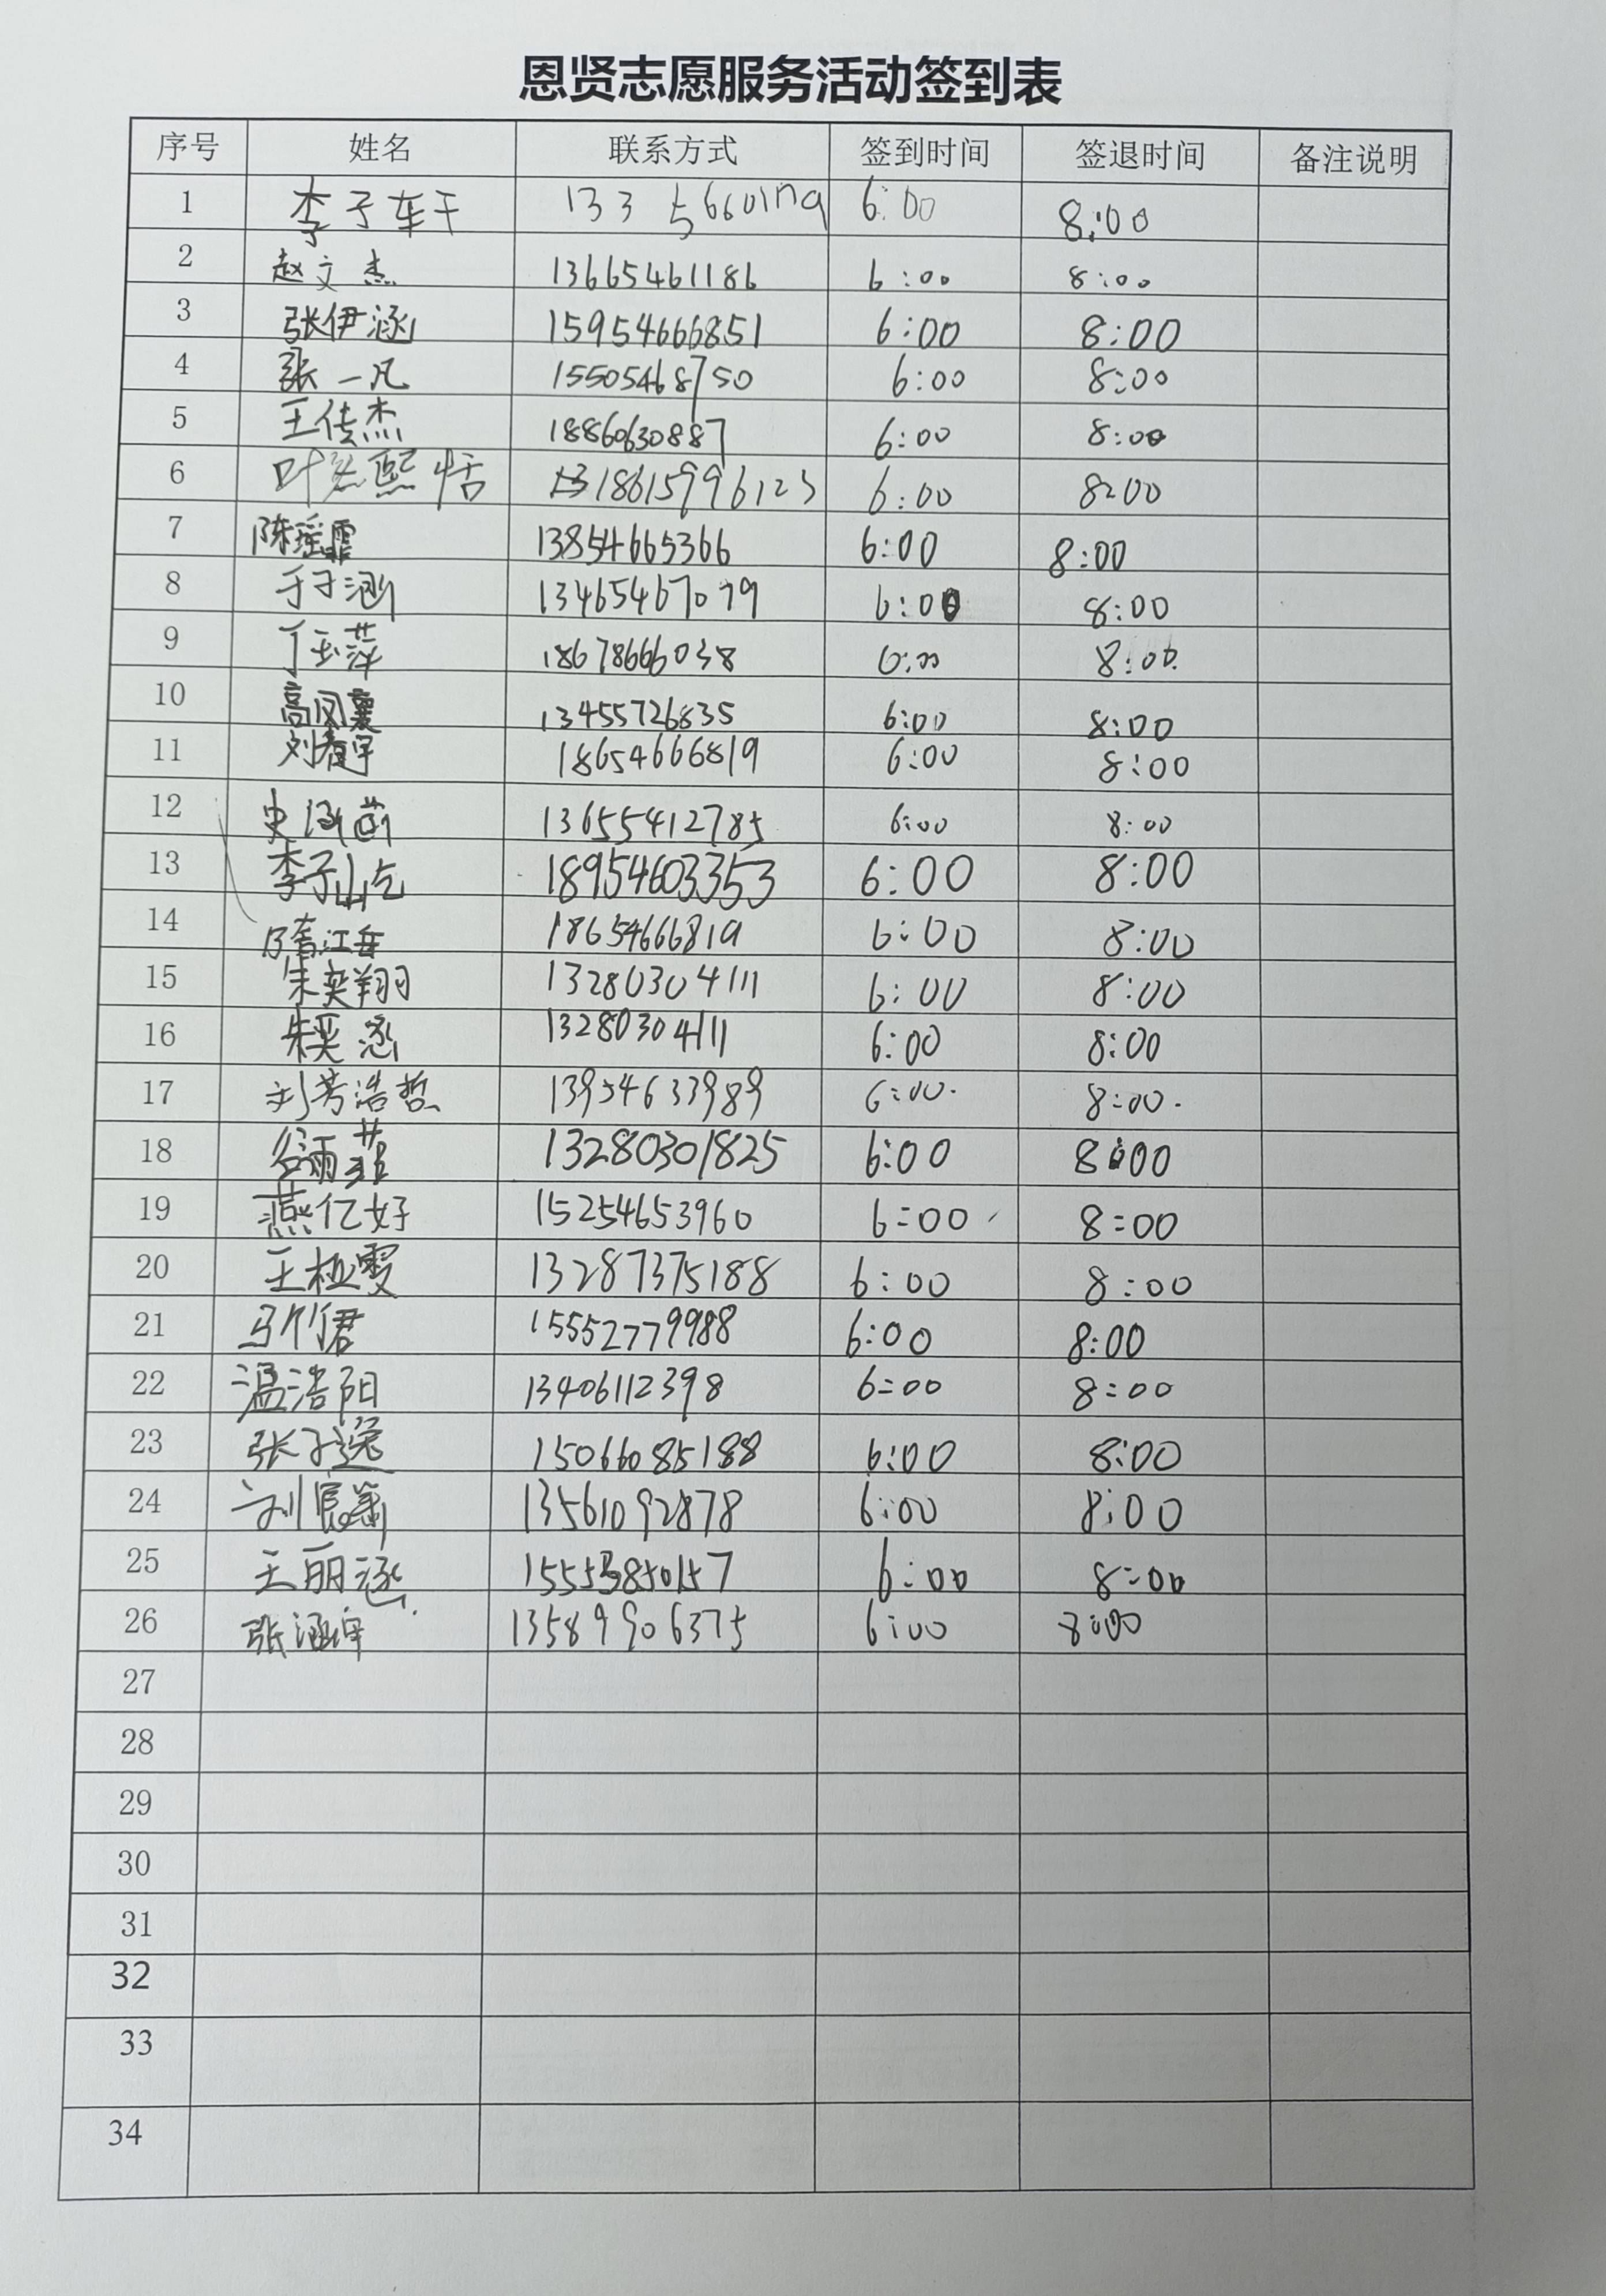 恩贤志愿服务活动签到表
序号 姓名 联系方式 签到时间 签退时间 备注说明
1 李子轩 133 6:00 8:00
2 赵文杰 13665461186 6:00 8:00
3 张伊涵 15954666851 6:00 8:00
4 张一凡 15505468750 6:00 8:00
5 王佳杰 18860630887 6:00 8:00
6 叶 熙恬 18615996123 6:00 8:00
7 陈瑶霏 13854665366 6:00 8:00
8 于子涵 13465467079 6:00 8:00
9 丁玉萍 18678666038 6:00 8:00
10 高凤 13455726835 6:00 8:00
11 刘 宇 18654666819 6:00 8:00
12 史涵 13655412785 6:00 8:00
13 李子屹 18954603353 6:00 8:00
14 隋江岳 18654666819 6:00 8:00
15 朱奕翔 13280304111 6:00 8:00
16 朱奕涵 13280304111 6:00 8:00
17 刘芳浩哲 13954633989 6:00. 8:00.
18 谷雨菲 13280301825 6:00 8:00
19 燕亿好 15254653960 6:00 8:00
20 王桓雯 13287375188 6:00 8:00
21 马竹君 15552779988 6:00 8:00
22 温浩阳 13406112398 6:00 8:00
23 张子逸 15066085188 6:00 8:00
24 刘宸 13561092878 6:00 8:00
25 王丽涵 15553850157 6:00 8:00
26 张涵 13589906375 6:00 8:00
27
28
29
30
31
32
33
34